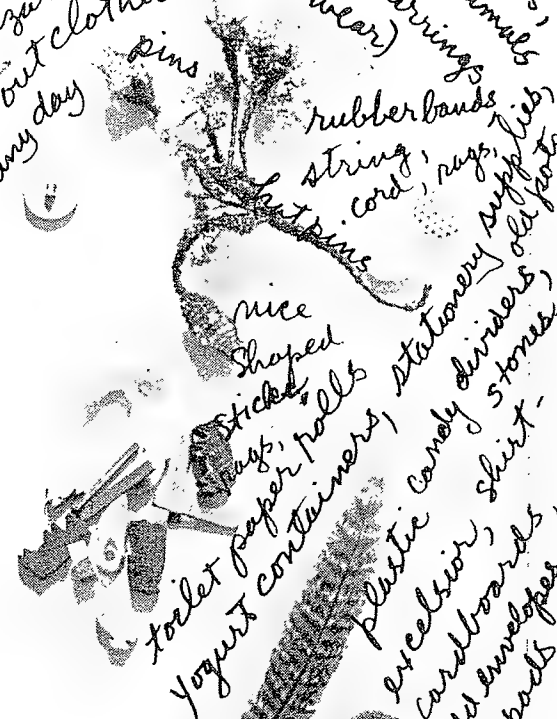 out clothe
any day
pins
wear)
rubberbands
string,
cord, rags,
hatpins
nice
shaped
sticks,
rags,
toilet paper rolls
Yogurt containers, stationery supplies,
plastic candy dividers,
old pots
stones,
excelsior, shirt-
cardboards,
envelopes